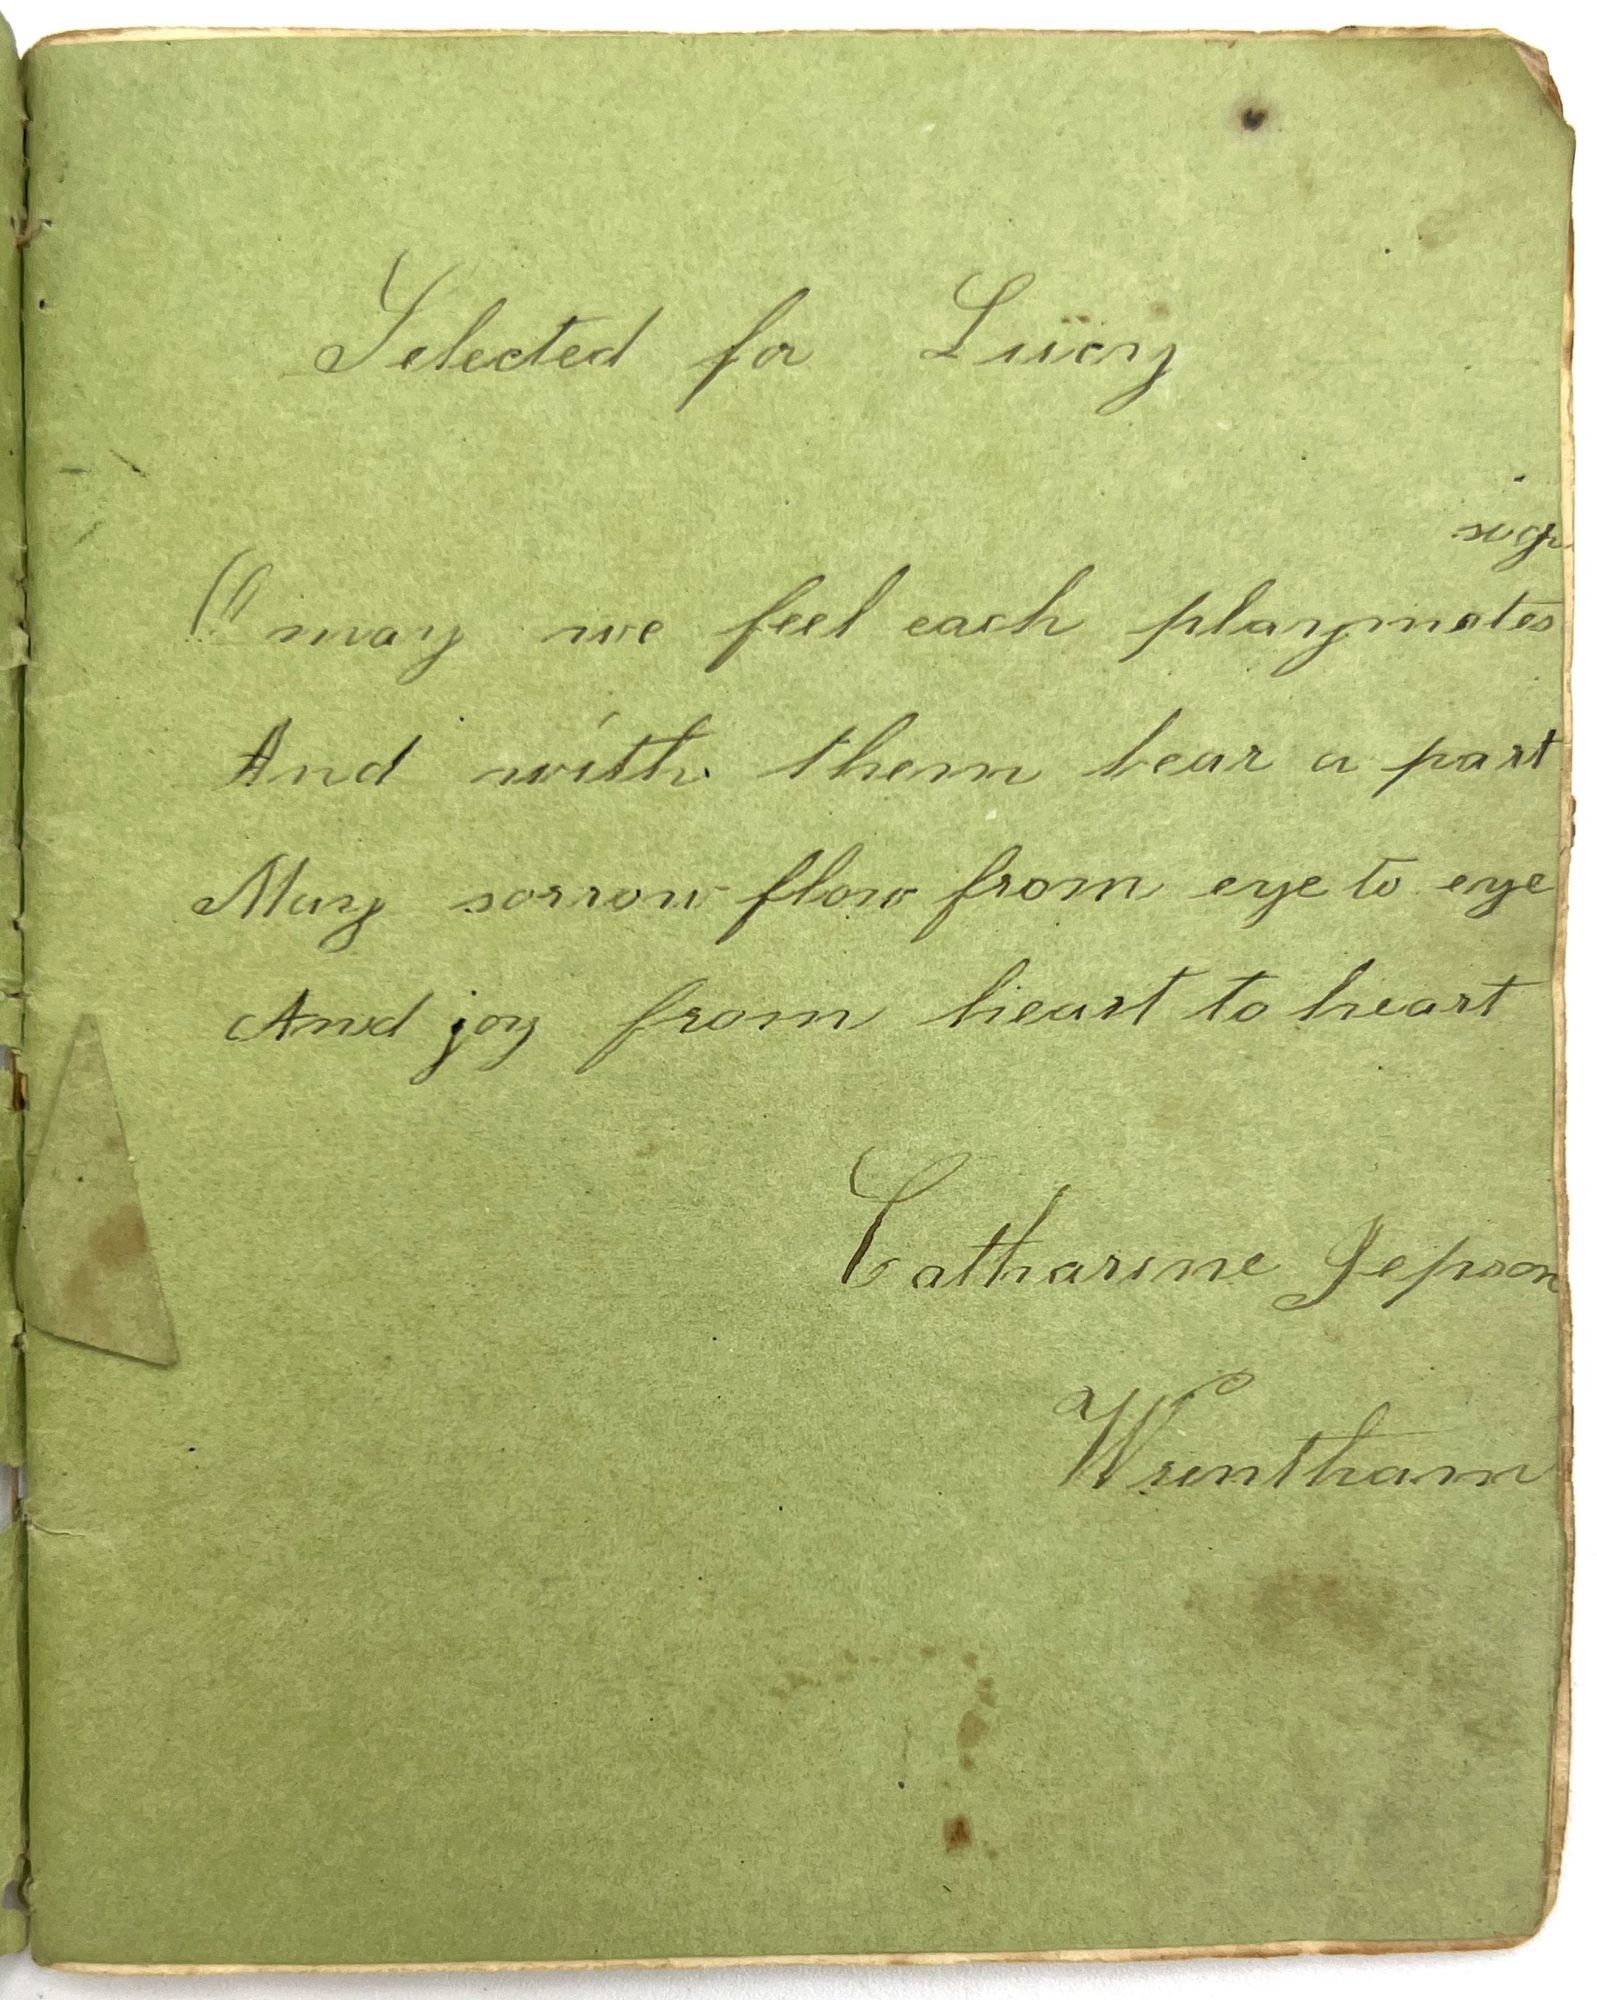 Selected for Lucy
sigh
O may we feel each playmates
And with them bear a part
May sorrow flow from eye to eye
And joy from heart to heart
Catharine Jepson
Wrentham